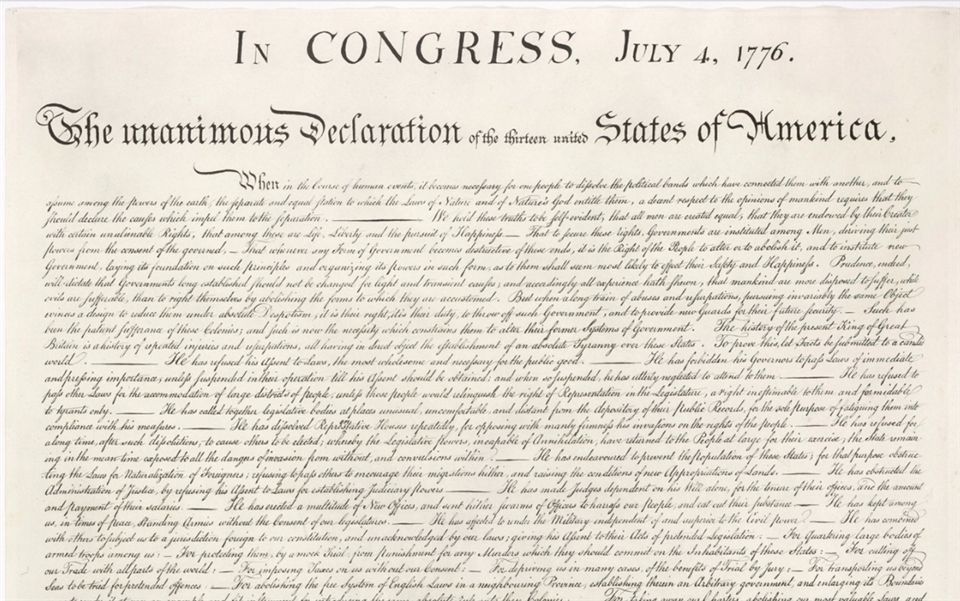 IN CONGRESS, JULY 4, 1776.
The unanimous Declaration of the thirteen united States of America.
When in the Course of human events, it becomes necessary for one people to dissolve the political bands which have connected them with another, and to
assume among the powers of the earth, the separate and equal station to which the Laws of Nature and of Nature's God entitle them, a decent respect to the opinions of mankind requires that they
should declare the causes which impel them to the separation. — We hold these truths to be self-evident, that all men are created equal, that they are endowed by their Creator
with certain unalienable Rights, that among these are Life, Liberty and the pursuit of Happiness. — That to secure these rights, Governments are instituted among Men, deriving their just
powers from the consent of the governed, — That whenever any Form of Government becomes destructive of these ends, it is the Right of the People to alter or to abolish it, and to institute new
Government, laying its foundation on such principles and organizing its powers in such form, as to them shall seem most likely to effect their Safety and Happiness. Prudence, indeed,
will dictate that Governments long established should not be changed for light and transient causes; and accordingly all experience hath shewn, that mankind are more disposed to suffer, while
evils are sufferable, than to right themselves by abolishing the forms to which they are accustomed. But when a long train of abuses and usurpations, pursuing invariably the same Object
evinces a design to reduce them under absolute Despotism, it is their right, it is their duty, to throw off such Government, and to provide new Guards for their future security. — Such has
been the patient sufferance of these Colonies; and such is now the necessity which constrains them to alter their former Systems of Government. The history of the present King of Great
Britain is a history of repeated injuries and usurpations, all having in direct object the establishment of an absolute Tyranny over these States. To prove this, let Facts be submitted to a candid
world. — He has refused his Assent to Laws, the most wholesome and necessary for the public good. — He has forbidden his Governors to pass Laws of immediate
and pressing importance, unless suspended in their operation till his Assent should be obtained; and when so suspended, he has utterly neglected to attend to them. — He has refused to
pass other Laws for the accommodation of large districts of people, unless those people would relinquish the right of Representation in the Legislature, a right inestimable to them and formidable
to tyrants only. — He has called together legislative bodies at places unusual, uncomfortable, and distant from the depository of their Public Records, for the sole purpose of fatiguing them into
compliance with his measures. — He has dissolved Representative Houses repeatedly, for opposing with manly firmness his invasions on the rights of the people. — He has refused for
a long time, after such dissolutions, to cause others to be elected; whereby the Legislative powers, incapable of Annihilation, have returned to the People at large for their exercise; the State remain-
ing in the mean time exposed to all the dangers of invasion from without, and convulsions within. — He has endeavoured to prevent the population of these States; for that purpose obstruc-
ting the Laws for Naturalization of Foreigners; refusing to pass others to encourage their migrations hither, and raising the conditions of new Appropriations of Lands. — He has obstructed the
Administration of Justice, by refusing his Assent to Laws for establishing Judiciary powers. — He has made Judges dependent on his Will alone, for the tenure of their offices, and the amount
and payment of their salaries. — He has erected a multitude of New Offices, and sent hither swarms of Officers to harrass our people, and eat out their substance. — He has kept among
us, in times of peace, Standing Armies without the Consent of our legislatures. — He has affected to render the Military independent of and superior to the Civil power. — He has combined
with others to subject us to a jurisdiction foreign to our constitution, and unacknowledged by our laws; giving his Assent to their Acts of pretended Legislation: — For Quartering large bodies of
armed troops among us: — For protecting them, by a mock Trial, from punishment for any Murders which they should commit on the Inhabitants of these States: — For cutting off
our Trade with all parts of the world: — For imposing Taxes on us without our Consent: — For depriving us in many cases, of the benefits of Trial by Jury: — For transporting us beyond
Seas to be tried for pretended offences — For abolishing the free System of English Laws in a neighbouring Province, establishing therein an Arbitrary government, and enlarging its Boundaries